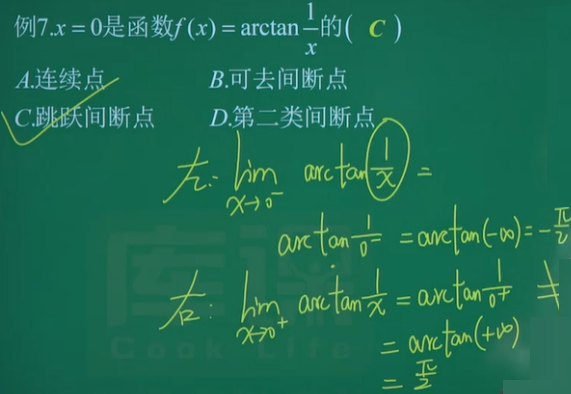 例7.x = 0是函数f(x) = arctan 1/x 的( C )
A.连续点 B.可去间断点
C.跳跃间断点 D.第二类间断点
左: lim x→0⁻ arctan 1/x =
arctan 1/0⁻ = arctan(-∞) = -π/2
右: lim x→0⁺ arctan 1/x = arctan 1/0⁺ ≠
= arctan(+∞)
= π/2
库课
Cook Life